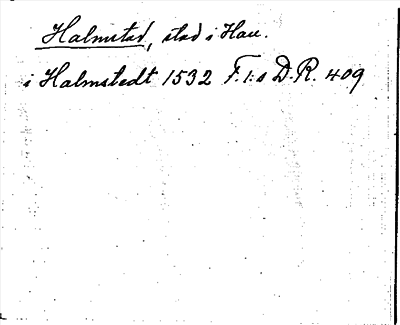 Halmstad, stad i Hall.
i Halmstedt 1532 F.1:s D.R. 409